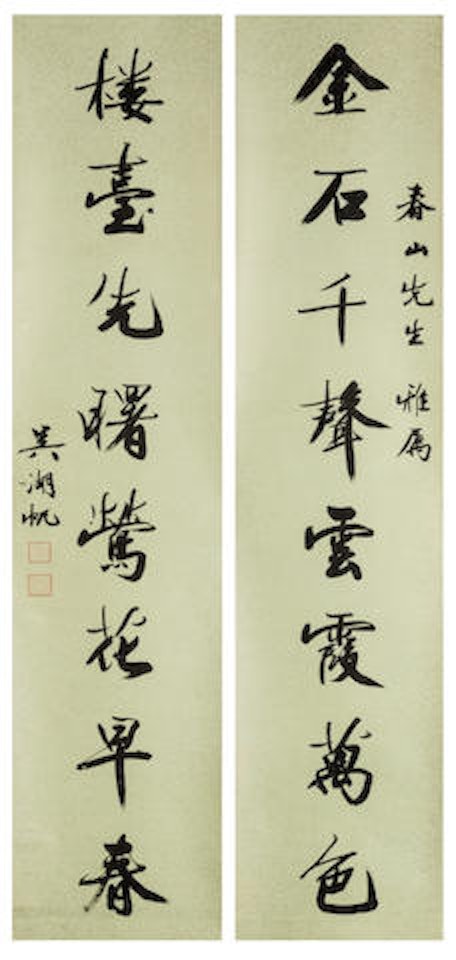 春山先生 雅属
金石千聲雲霞萬色
楼臺先曙鶯花早春
吴湖帆